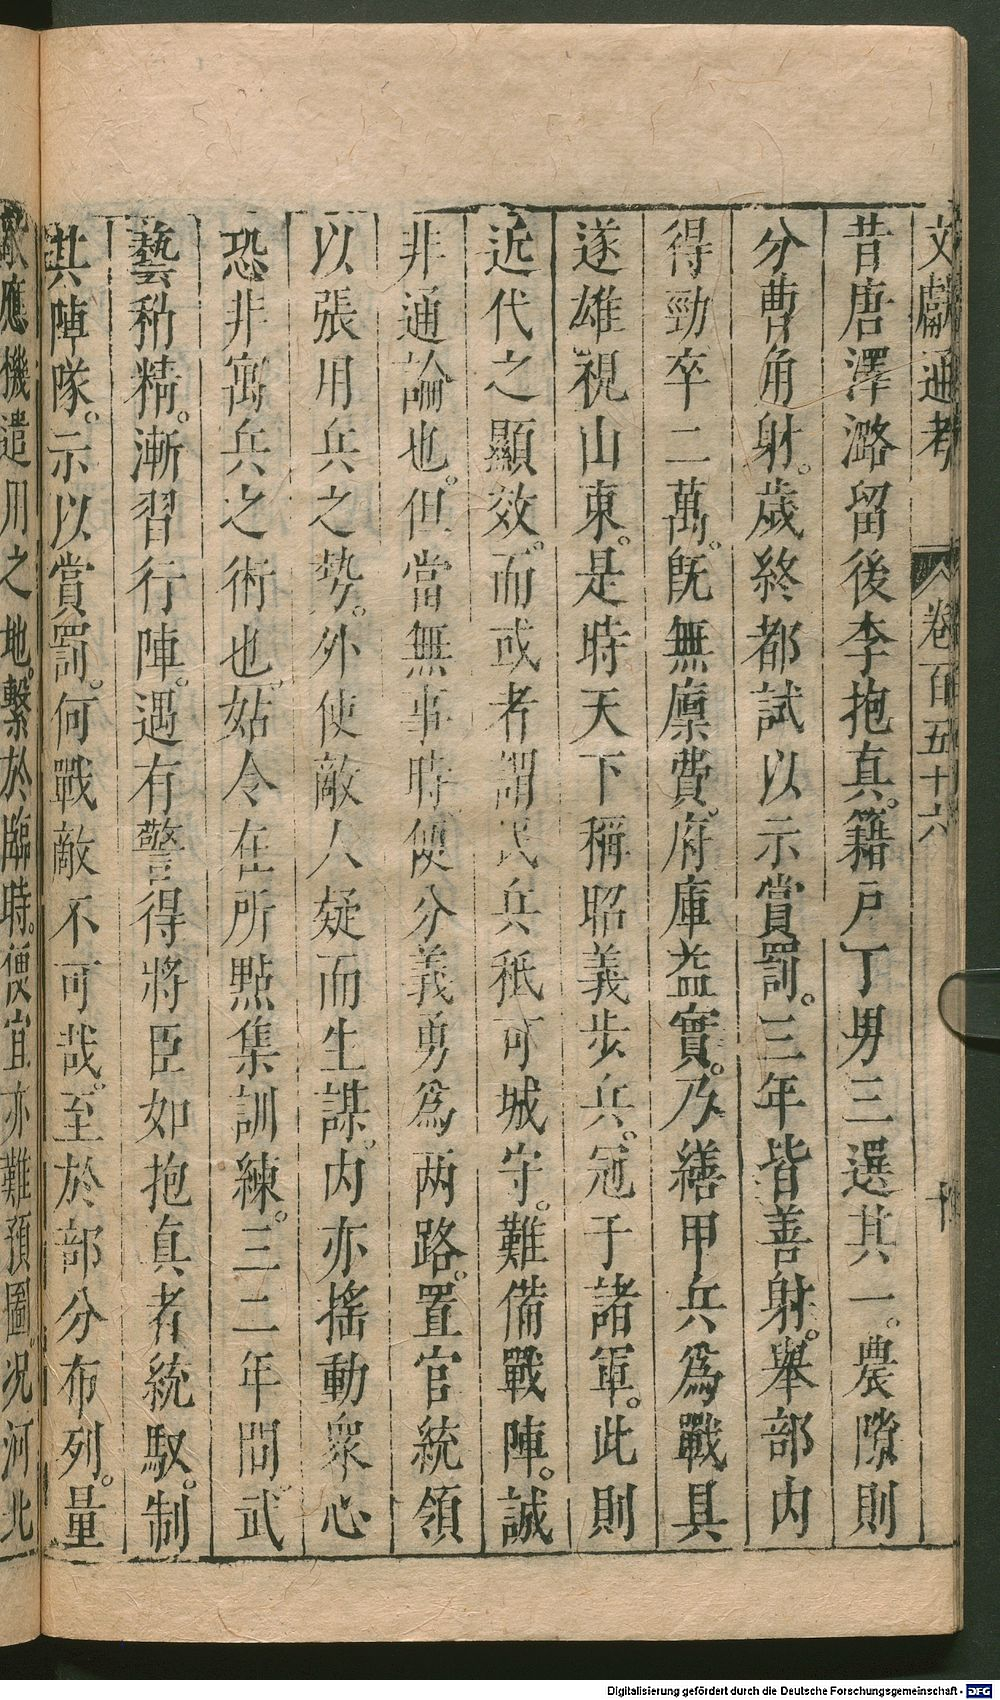 文獻通考　卷百五十六　十
昔唐澤潞留後李抱真。籍戶丁男三選其一。農隙則
分曹角射。歲終都試以示賞罰。三年皆善射。舉部內
得勁卒二萬。既無廩費。府庫益實。乃繕甲兵爲戰具
遂雄視山東。是時天下稱昭義步兵。冠于諸軍。此則
近代之顯效。而或者謂民兵秖可城守。難備戰陣。誠
非通論也。但當無事時便分義勇爲两路。置官統領
以張用兵之勢。外使敵人疑而生謀。内亦搖動衆心
恐非寓兵之術也。姑令在所點集訓練。三二年間。武
藝稍精。漸習行陣。遇有警得將臣如抱真者統馭。制
其陣隊。示以賞罰。何戰敵不可哉。至於部分布列。量
敵應機遣用之地。繫於臨時。便宜亦難預圖。况河北
Digitalisierung gefördert durch die Deutsche Forschungsgemeinschaft - DFG